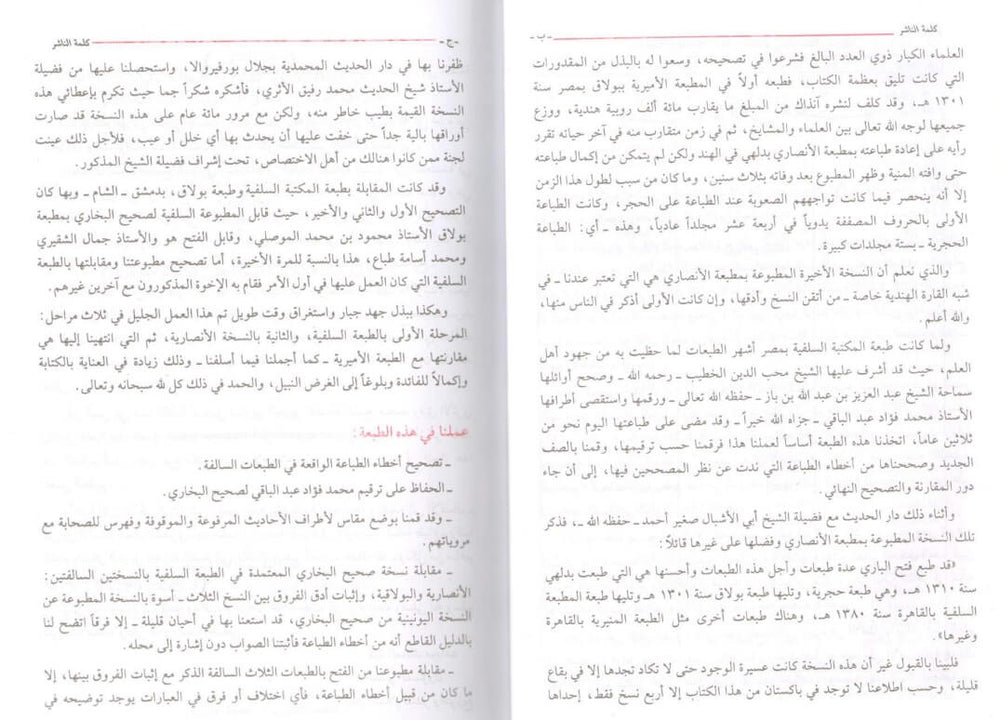 كلمة الناشر
ـ ب ـ
العلماء الكبار ذوي العدد البالغ فشرعوا في تصحيحه، وسعوا له بالبذل من المقدورات
التي كانت تليق بعظمة الكتاب، فطبعه أولاً في المطبعة الأميرية ببولاق بمصر سنة
١٣٠١ هـ، وقد كلف لنشره آنذاك من المبلغ ما يقارب مائة ألف روبية هندية، ووزع
جميعها لوجه الله تعالى بين العلماء والمشايخ، ثم في زمن متقارب منه في آخر حياته تقرر
رأيه على إعادة طباعته بمطبعة الأنصاري بدلهي في الهند ولكن لم يتمكن من إكمال طباعته
حتى وافته المنية وظهر المطبوع بعد وفاته بثلاث سنين، وما كان من سبب لطول هذا الزمن
إلا أنه ينحصر فيما كانت تواجههم الصعوبة عند الطباعة على الحجر، وكانت الطباعة
الأولى بالحروف المصففة يدوياً في أربعة عشر مجلداً عادياً، وهذه ـ أي: الطباعة
الحجرية ـ بستة مجلدات كبيرة.
والذي نعلم أن النسخة الأخيرة المطبوعة بمطبعة الأنصاري هي التي تعتبر عندنا ـ في
شبه القارة الهندية خاصة ـ من أتقن النسخ وأدقها، وإن كانت الأولى أذكر في الناس منها،
والله أعلم.
ولما كانت طبعة المكتبة السلفية بمصر أشهر الطبعات لما حظيت به من جهود أهل
العلم، حيث قد أشرف عليها الشيخ محب الدين الخطيب ـ رحمه الله ـ وصحح أوائلها
سماحة الشيخ عبد العزيز بن عبد الله بن باز ـ حفظه الله تعالى ـ ورقمها واستقصى أطرافها
الأستاذ محمد فؤاد عبد الباقي ـ جزاه الله خيراً ـ وقد مضى على طباعتها اليوم نحو من
ثلاثين عاماً، اتخذنا هذه الطبعة أساساً لعملنا هذا فرقمنا حسب ترقيمها، وقمنا بالصف
الجديد وصححناها من أخطاء الطباعة التي ندت عن نظر المصححين فيها، إلى أن جاء
دور المقارنة والتصحيح النهائي.
وأثناء ذلك دار الحديث مع فضيلة الشيخ أبي الأشبال صغير أحمد ـ حفظه الله ـ، فذكر
تلك النسخة المطبوعة بمطبعة الأنصاري وفضلها على غيرها قائلاً:
«قد طبع فتح الباري عدة طبعات وأجل هذه الطبعات وأحسنها هي التي طبعت بدلهي
سنة ١٣١٠ هـ، وهي طبعة حجرية، وتليها طبعة بولاق سنة ١٣٠١ هـ وتليها طبعة المطبعة
السلفية بالقاهرة سنة ١٣٨٠ هـ، وهناك طبعات أخرى مثل الطبعة المنيرية بالقاهرة
وغيرها».
فلبينا بالقبول غير أن هذه النسخة كانت عسيرة الوجود حتى لا تكاد تجدها إلا في بقاع
قليلة، وحسب اطلاعنا لا توجد في باكستان من هذا الكتاب إلا أربع نسخ فقط، إحداها
ـ ج ـ
كلمة الناشر
ظفرنا بها في دار الحديث المحمدية بجلال بورفيروالا، واستحصلنا عليها من فضيلة
الأستاذ شيخ الحديث محمد رفيق الأثري، فأشكره شكراً جما حيث تكرم بإعطائي هذه
النسخة القيمة بطيب خاطر منه، ولكن مع مرور مائة عام على هذه النسخة قد صارت
أوراقها بالية جداً حتى خفت عليها أن يحدث بها أي خلل أو عيب، فلأجل ذلك عينت
لجنة ممن كانوا هنالك من أهل الاختصاص، تحت إشراف فضيلة الشيخ المذكور.
وقد كانت المقابلة بطبعة المكتبة السلفية وطبعة بولاق، بدمشق ـ الشام ـ وبها كان
التصحيح الأول والثاني والأخير، حيث قابل المطبوعة السلفية لصحيح البخاري بمطبعة
بولاق الأستاذ محمود بن محمد الموصلي، وقابل الفتح هو والأستاذ جمال الشقيري
ومحمد أسامة طباع، هذا بالنسبة للمرة الأخيرة، أما تصحيح مطبوعتنا ومقابلتها بالطبعة
السلفية التي كان العمل عليها في أول الأمر فقام به الإخوة المذكورون مع آخرين غيرهم.
وهكذا ببذل جهد جبار واستغراق وقت طويل تم هذا العمل الجليل في ثلاث مراحل:
المرحلة الأولى بالطبعة السلفية، والثانية بالنسخة الأنصارية، ثم التي انتهينا إليها هي
مقارنتها مع الطبعة الأميرية ـ كما أجملنا فيما أسلفنا ـ وذلك زيادة في العناية بالكتابة
وإكمالاً للفائدة وبلوغاً إلى الغرض النبيل، والحمد في ذلك كل لله سبحانه وتعالى.
عملنا في هذه الطبعة:
ـ تصحيح أخطاء الطباعة الواقعة في الطبعات السالفة.
ـ الحفاظ على ترقيم محمد فؤاد عبد الباقي لصحيح البخاري.
ـ وقد قمنا بوضع مقاس لأطراف الأحاديث المرفوعة والموقوفة وفهرس للصحابة مع
مروياتهم.
ـ مقابلة نسخة صحيح البخاري المعتمدة في الطبعة السلفية بالنسختين السالفتين:
الأنصارية والبولاقية، وإثبات أدق الفروق بين النسخ الثلاث ـ أسوة بالنسخة المطبوعة عن
النسخة اليونينية من صحيح البخاري، قد استعنا بها في أحيان قليلة ـ إلا فرقاً اتضح لنا
بالدليل القاطع أنه من أخطاء الطباعة فأثبتنا الصواب دون إشارة إلى محله.
ـ مقابلة مطبوعتنا من الفتح بالطبعات الثلاث السالفة الذكر مع إثبات الفروق بينها، إلا
ما كان من قبيل أخطاء الطباعة، فأي اختلاف أو فرق في العبارات يوجد توضيحه في